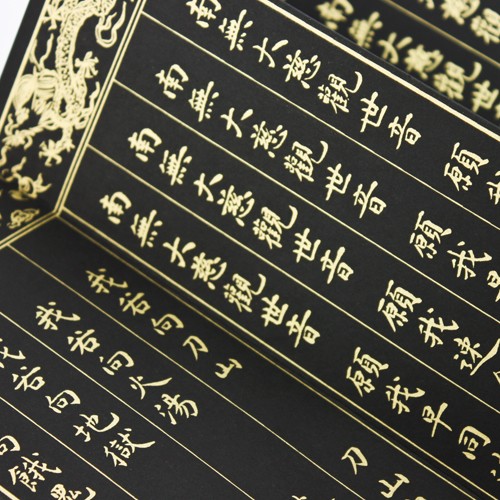 南無大慈觀世音 願我
南無大慈觀世音 願我
南無大慈觀世音 願我速
南無大慈觀世音 願我早同
我若向刀山 刀山
我若向火湯
我若向地獄
向餓鬼